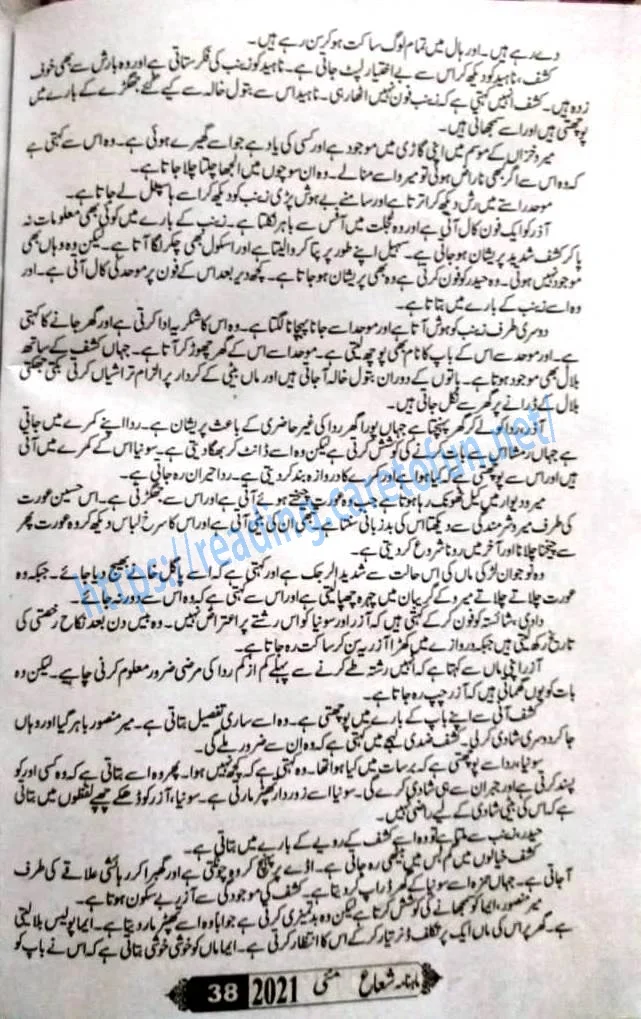 دے رہے ہیں۔ اور ہال میں تمام لوگ ساکت ہو کر سن رہے ہیں۔
کشف، ناہید کو دیکھ کر اس سے بے اختیار لپٹ جاتی ہے۔ ناہید کو زینب کی فکر ستاتی ہے اور وہ بارش سے بھی خوف
زدہ ہیں۔ کشف انہیں کہتی ہے کہ زینب فون نہیں اٹھا رہی۔ ناہید اس سے بتول خالہ سے کیے گئے جھگڑے کے بارے میں
پوچھتی ہیں اور اسے سمجھاتی ہیں۔
میرو خزاں کے موسم میں اپنی گاڑی میں موجود ہے اور کسی کی یاد ہے جو اسے گھیرے ہوئی ہے۔ وہ اس سے کہتی ہے
کہ وہ اس سے اگر بھی ناراض ہوئی تو میرو اسے منالے۔ وہ ان سوچوں میں الجھا چلتا چلا جاتا ہے۔
موحد راستے میں رش دیکھ کر اترتا ہے اور سامنے بے ہوش پڑی زینب کو دیکھ کر اسے ہاسپٹل لے جاتا ہے۔
آذر کو ایک فون کال آتی ہے اور وہ عجلت میں آفس سے باہر نکلتا ہے۔ زینب کے بارے میں کوئی بھی معلومات نہ
پا کر کشف شدید پریشان ہو جاتی ہے۔ سہیل اپنے طور پر پتا کروالیتا ہے اور اسکول بھی چکر لگا آتا ہے۔ لیکن وہ وہاں بھی
موجود نہیں ہوتی۔ وہ حیدر کو فون کرتی ہے وہ بھی پریشان ہو جاتا ہے۔ کچھ دیر بعد اس کے فون پر موحد کی کال آتی ہے۔ اور
وہ اسے زینب کے بارے میں بتاتا ہے۔
دوسری طرف زینب کو ہوش آتا ہے اور موحد اسے جانا پہچانا لگتا ہے۔ وہ اس کا شکریہ ادا کرتی ہے اور گھر جانے کا کہتی
ہے۔ اور موحد سے اس کے باپ کا نام بھی پوچھ لیتی ہے۔ موحد اسے اس کے گھر چھوڑ کر آتا ہے۔ جہاں کشف کے ساتھ
بلال بھی موجود ہوتا ہے۔ باتوں کے دوران بتول خالہ آجاتی ہیں اور ماں بیٹی کے کردار پر الزام تراشیاں کرتی بکتی جھکتی
بلال کے ڈرانے پر گھر سے نکل جاتی ہیں۔
آذر ردا کو لے کر گھر پہنچتا ہے جہاں پورا گھر ردا کی غیر حاضری کے باعث پریشان ہے۔ ردا اپنے کمرے میں جاتی
ہے جہاں رمشا اس سے بات کرنے کی کوشش کرتی ہے لیکن وہ اسے ڈانٹ کر بھگا دیتی ہے۔ سونیا اس کے کمرے میں آتی
ہیں اور اس سے پوچھتی ہے کہ کیا ہوا ہے اور کمرے کا دروازہ بند کر دیتی ہے۔ ردا حیران رہ جاتی ہے۔
میرو دیوار میں کیل ٹھونک رہا ہوتا ہے جب وہ عورت چیختے ہوئے آتی ہے اور اس سے جھگڑتی ہے۔ اس حسین عورت
کی طرف میرو شرمندگی سے دیکھتا اس کی بدزبانی سنتا ہے۔ تبھی ان کی بیٹی آتی ہے اور اس کا سرخ لباس دیکھ کر وہ عورت پھر
سے چیخنا چلانا اور آخر میں رونا شروع کر دیتی ہے۔
وہ نوجوان لڑکی ماں کی اس حالت سے شدید الرجک ہے اور کہتی ہے کہ اسے پاگل خانے بھیج دیا جائے۔ جبکہ وہ
عورت چلاتے چلاتے میرو کے گریبان میں چہرہ چھپا لیتی ہے اور اس سے کہتی ہے کہ وہ اس سے دور نہ جائے۔
دادی، شائستہ کو فون کر کے کہتی ہیں کہ آذر اور سونیا کو اس رشتے پر اعتراض نہیں۔ وہ بیس دن بعد نکاح رخصتی کی
تاریخ رکھ لیتی ہیں جبکہ دروازے میں کھڑا آذر یہ سن کر ساکت رہ جاتا ہے۔
آذر اپنی ماں سے کہتا ہے کہ انہیں رشتہ طے کرنے سے پہلے کم از کم ردا کی مرضی ضرور معلوم کرنی چاہیے۔ لیکن وہ
بات کو یوں گھماتی ہیں کہ آذر چپ رہ جاتا ہے۔
کشف آنی سے اپنے باپ کے بارے میں پوچھتی ہے۔ وہ اسے ساری تفصیل بتاتی ہے۔ میر منصور باہر گیا اور وہاں
جا کر دوسری شادی کرلی۔ کشف ضدی لہجے میں کہتی ہے کہ وہ ان سے ضرور ملے گی۔
سونیا، ردا سے پوچھتی ہے کہ برسات میں کیا ہوا تھا۔ وہ کہتی ہے کہ کچھ نہیں ہوا۔ پھر وہ اسے بتاتی ہے کہ وہ کسی اور کو
پسند کرتی ہے اور جبران سے ہی شادی کرے گی۔ سونیا اسے زوردار تھپڑ مارتی ہے۔ سونیا، آذر کو ڈھکے چھپے لفظوں میں بتاتی
ہے کہ اس کی بیٹی شادی کے لیے راضی نہیں۔
حیدر، زینب سے ملتا ہے تو وہ اسے کشف کے رویے کے بارے میں بتاتی ہے۔
کشف خیالوں میں گم بس میں بیٹھی رہ جاتی ہے۔ اڈے پر پہنچ کر وہ چونکتی ہے اور گھبرا کر رہائشی علاقے کی طرف
آجاتی ہے۔ جہاں حمزہ اسے سونیا کے گھر ڈراپ کر دیتا ہے۔ کشف کی موجودگی سے آذر بے سکون ہوتا ہے۔
میر منصور، ایما کو سمجھانے کی کوشش کرتا ہے لیکن وہ بدتمیزی کرتی ہے جواباً وہ اسے تھپڑ مار دیتا ہے۔ ایما پولیس بلا لیتی
ہے۔ گھر پر اس کی ماں ایک پر تکلف ڈنر تیار کر کے اس کا انتظار کرتی ہے۔ ایما ماں کو خوشی خوشی بتاتی ہے کہ اس نے باپ کو
ماہنامہ شعاع مئی 2021 38
https://reading.caretofun.net/